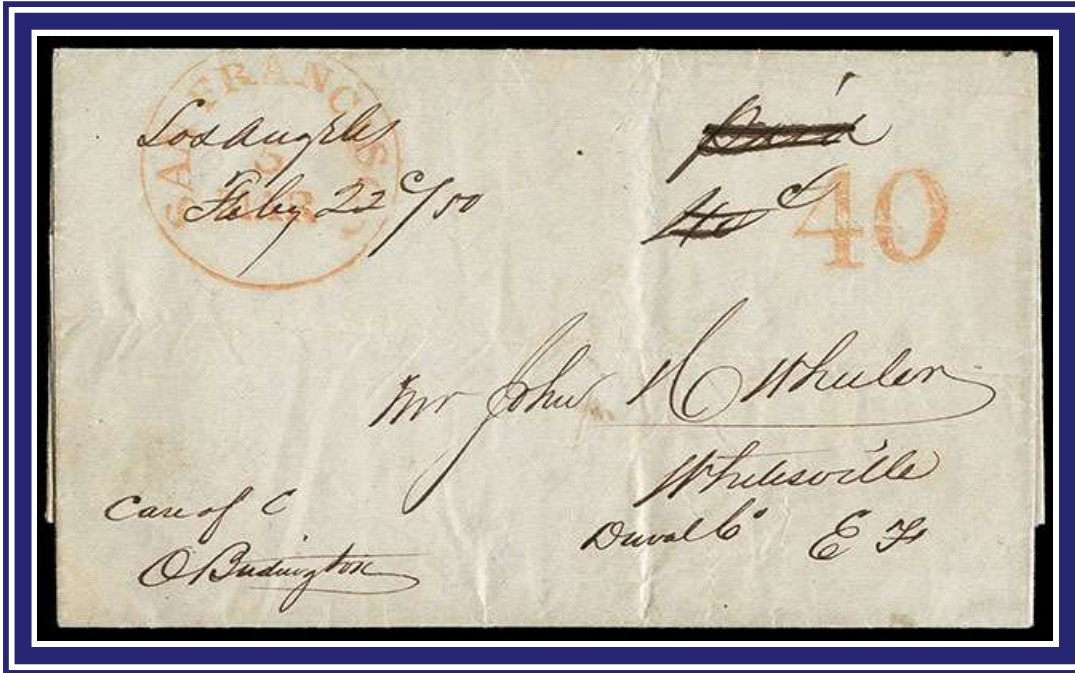 SAN FRANCISCO
MAR
Los Angeles
Feby 22 /50
Paid
40
40
Mr John Wheeler
Whitesville
Duval Co E F
Care of C
O Budington